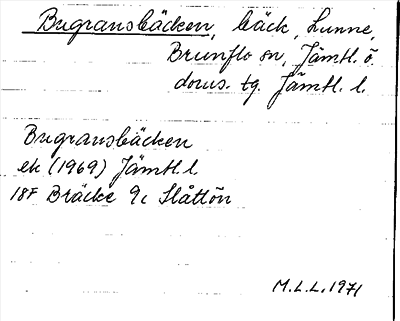 Bugransbäcken, bäck, Lunne,
Brunflo sn, Jämtl. ö
doms. tg. Jämtl. l.
Bugransbäcken
ek (1969) Jämtl. l
18F Bräcke 9c Slåttön
M.L.L. 1971